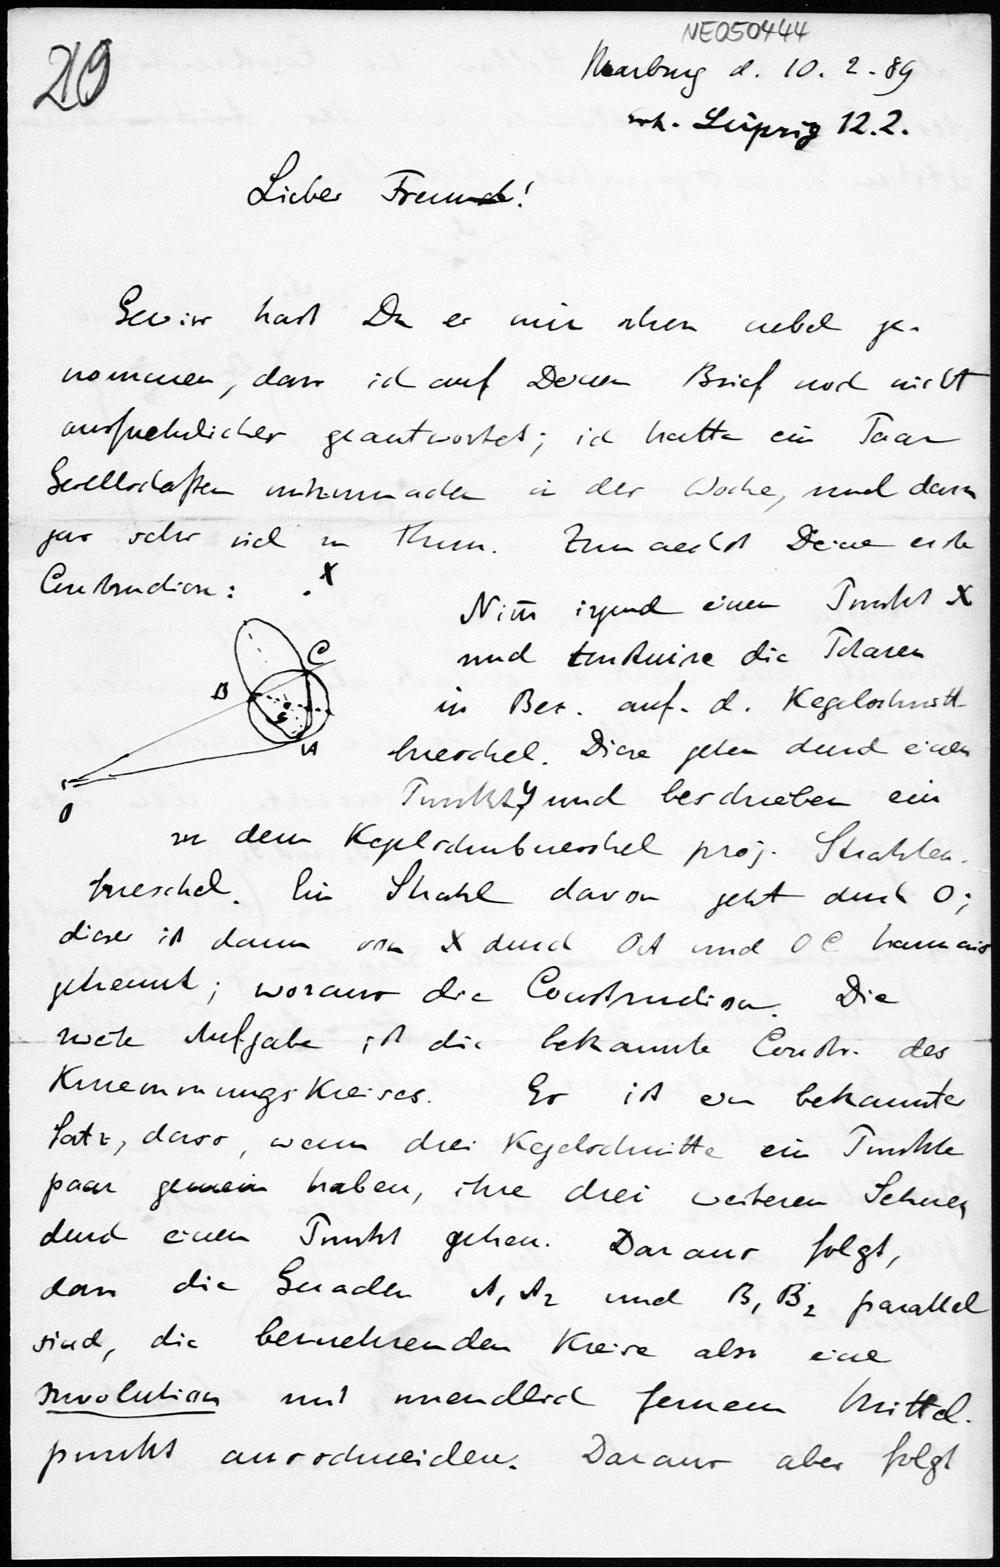 NE050444
29
Marburg d. 10. 2. 89
erh. Leipzig 12.2.
Lieber Freund!
Gewiss hast Du es mir schon uebel ge-
nommen, dass ich auf Deinen Brief noch nicht
ausfuehrlicher geantwortet; ich hatte ein Paar
Gesellschaften mitzumachen in der Woche, und dann
gar sehr viel zu thun. Zunaechst Deine erste
Construction:
X
Nim̄ irgend einen Punkt X
und construire die Polaren
in Bez. auf d. Kegelschnitt-
bueschel. Diese gehen durch einen
Punkt Y und beschreiben ein
zu dem Kegelschnbueschel proj. Strahlen-
bueschel. Ein Strahl davon geht durch O;
dieser ist dann von X durch OA und OC harmonisch
getrennt; woraus die Construction. Die
B
C
A
O
zweite Aufgabe ist die bekannte Constr. des
Kruemmungskreises. Es ist ein bekannter
Satz, dass, wenn drei Kegelschnitte ein Punkte
paar gemein haben, ihre drei weiteren Sehnen
durch einen Punkt gehen. Daraus folgt,
dass die Geraden A₁A₂ und B₁B₂ parallel
sind, die beruehrenden Kreise also eine
Involution mit unendlich fernem Mittel-
punkt ausschneiden. Daraus aber folgt